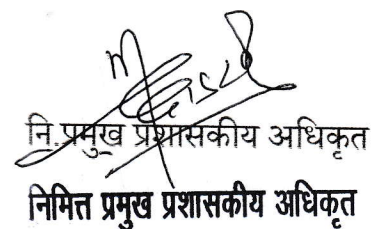 नि.प्रमुख प्रशासकीय अधिकृत
निमित्त प्रमुख प्रशासकीय अधिकृत